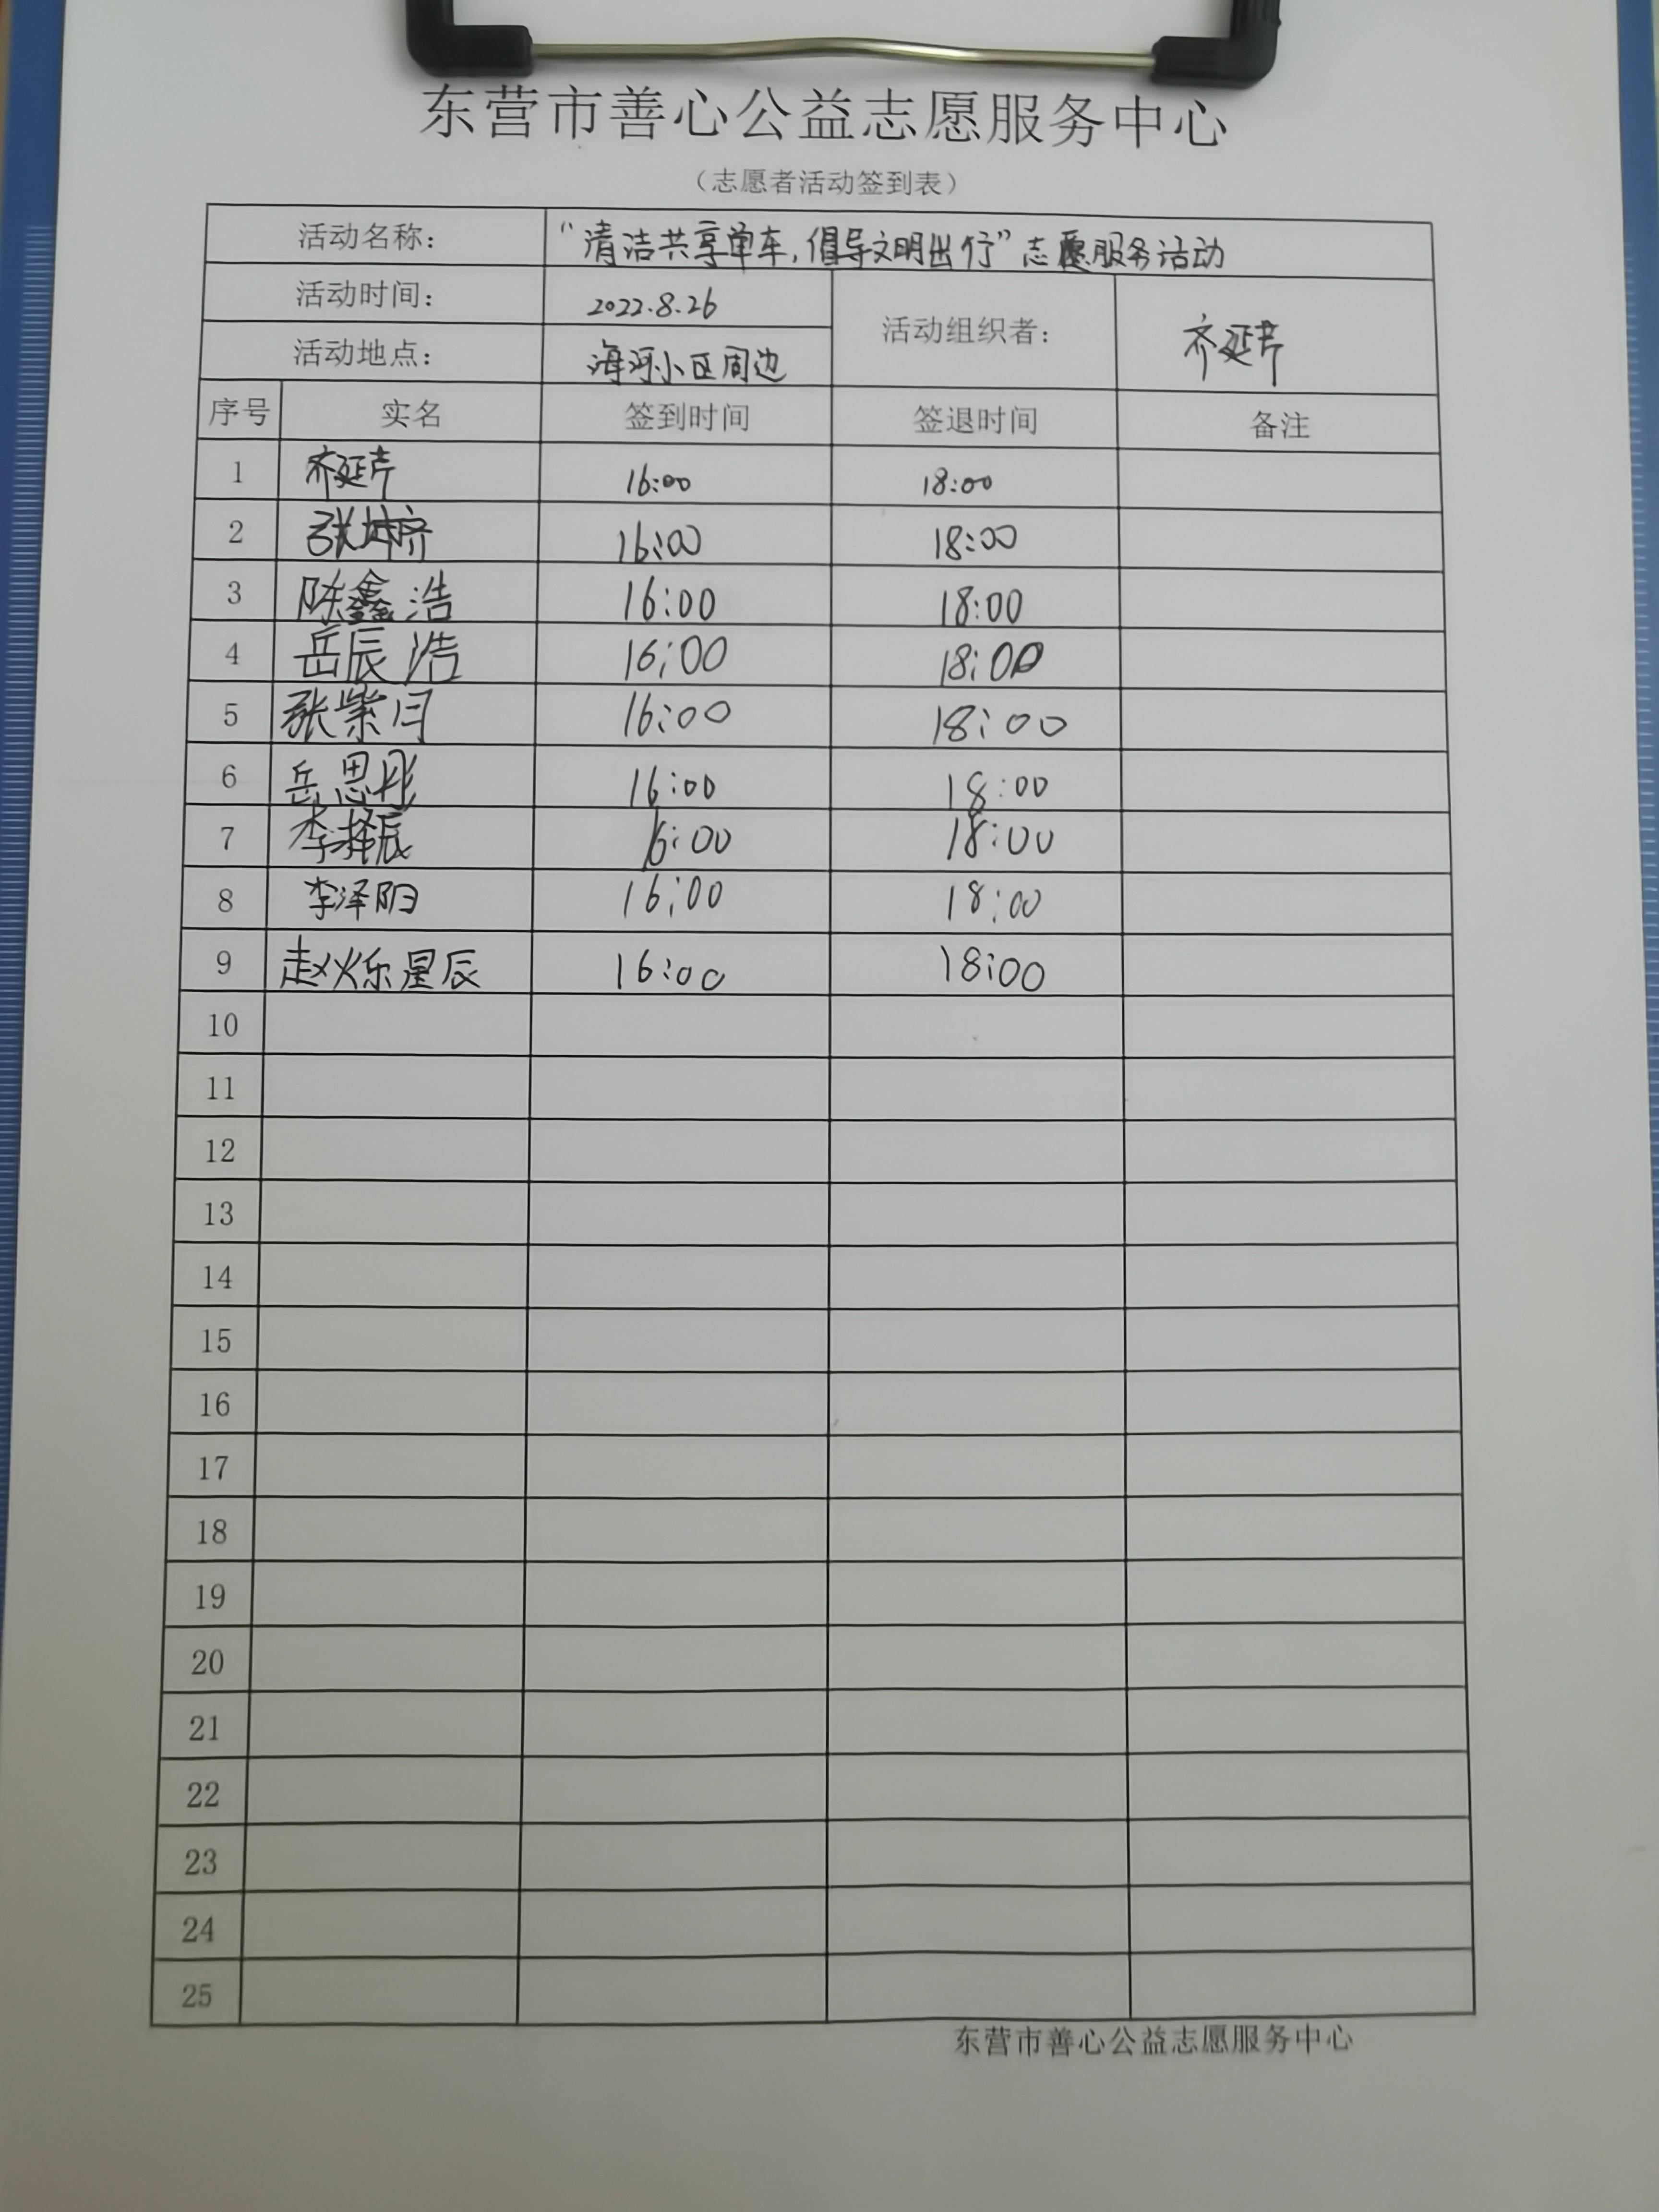 东营市善心公益志愿服务中心
（志愿者活动签到表）
活动名称： “清洁共享单车，倡导文明出行”志愿服务活动
活动时间： 2022.8.26 活动组织者： 齐延芹
活动地点： 海河小区周边
序号 实名 签到时间 签退时间 备注
1 齐延芹 16:00 18:00
2 张 16:00 18:00
3 陈鑫浩 16:00 18:00
4 岳辰浩 16:00 18:00
5 张紫月 16:00 18:00
6 岳思彤 16:00 18:00
7 李泽辰 16:00 18:00
8 李泽阳 16:00 18:00
9 赵烁星辰 16:00 18:00
10
11
12
13
14
15
16
17
18
19
20
21
22
23
24
25
东营市善心公益志愿服务中心